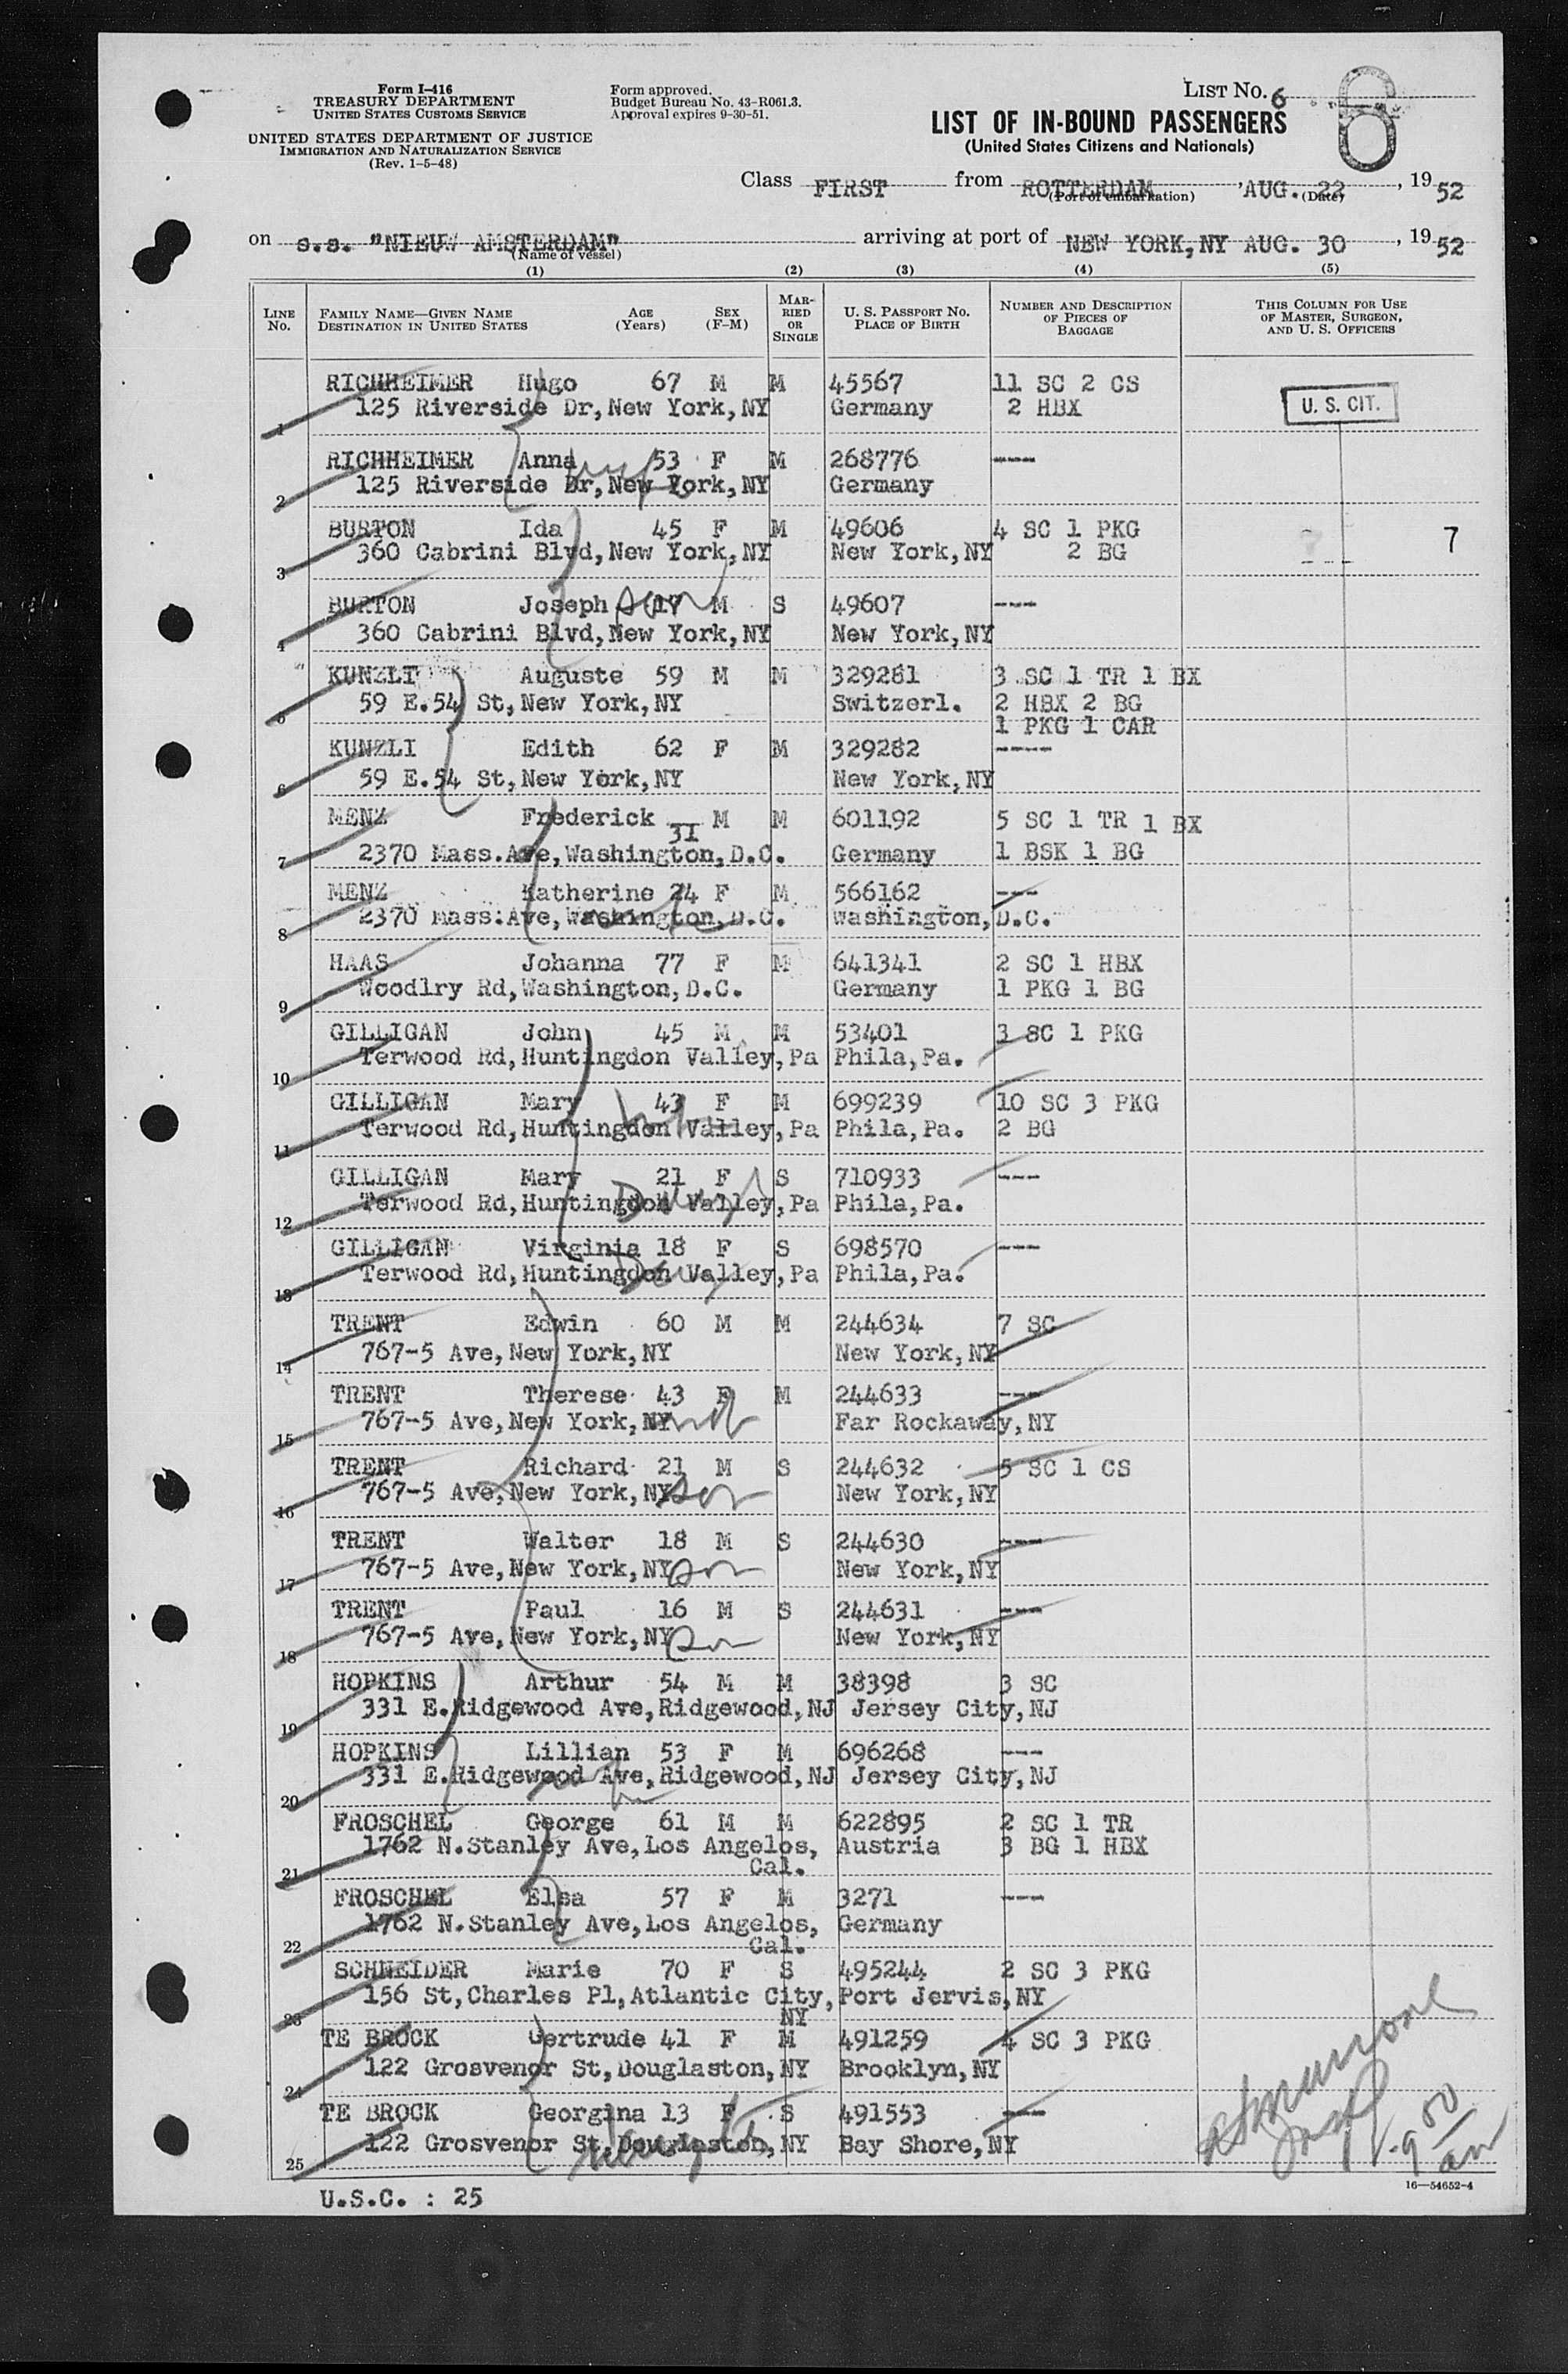 Form I-416
TREASURY DEPARTMENT
UNITED STATES CUSTOMS SERVICE
UNITED STATES DEPARTMENT OF JUSTICE
IMMIGRATION AND NATURALIZATION SERVICE
(Rev. 1-5-48)
Form approved.
Budget Bureau No. 43-R061.3.
Approval expires 9-30-51.
LIST NO. 6
6
LIST OF IN-BOUND PASSENGERS
(United States Citizens and Nationals)
Class FIRST from ROTTERDAM, AUG. 22, 1952
(Port of embarkation) (Date)
on s.s. "NIEUW AMSTERDAM" arriving at port of NEW YORK,NY AUG. 30, 1952
(Name of vessel)
(1) (2) (3) (4) (5)
LINE NO. FAMILY NAME—GIVEN NAME DESTINATION IN UNITED STATES AGE (Years) SEX (F-M) MARRIED OR SINGLE U. S. PASSPORT NO. PLACE OF BIRTH NUMBER AND DESCRIPTION OF PIECES OF BAGGAGE THIS COLUMN FOR USE OF MASTER, SURGEON, AND U. S. OFFICERS
RICHHEIMER Hugo 67 M M 45567 11 SC 2 CS
1 125 Riverside Dr,New York,NY Germany 2 HBX U. S. CIT.
RICHHEIMER Anna 53 F M 268776 ----
wife
2 125 Riverside Dr,New York,NY Germany
BURTON Ida 45 F M 49606 4 SC 1 PKG 7
3 360 Cabrini Blvd,New York,NY New York,NY 2 BG
BURTON Joseph son 17 M S 49607 ----
4 360 Cabrini Blvd,New York,NY New York,NY
KUNZLI Auguste 59 M M 329281 3 SC 1 TR 1 BX
5 59 E.54 St,New York,NY Switzerl. 2 HBX 2 BG
1 PKG 1 CAR
KUNZLI Edith 62 F M 329282 ----
6 59 E.54 St,New York,NY New York,NY
MENZ Frederick 31 M M 601192 5 SC 1 TR 1 BX
7 2370 Mass.Ave,Washington,D.C. Germany 1 BSK 1 BG
MENZ Katherine 24 F M 566162 ---
8 2370 Mass.Ave,Washington,D.C. Washington,D.C.
wife
HAAS Johanna 77 F M 641341 2 SC 1 HBX
9 Woodlry Rd,Washington,D.C. Germany 1 PKG 1 BG
GILLIGAN John 45 M M 53401 3 SC 1 PKG
10 Terwood Rd,Huntingdon Valley,Pa Phila,Pa.
GILLIGAN Mary 43 F M 699239 10 SC 3 PKG
wife
11 Terwood Rd,Huntingdon Valley,Pa Phila,Pa. 2 BG
GILLIGAN Mary 21 F S 710933 ---
Daug
12 Terwood Rd,Huntingdon Valley,Pa Phila,Pa.
GILLIGAN Virginia 18 F S 698570 ---
Daug
13 Terwood Rd,Huntingdon Valley,Pa Phila,Pa.
TRENT Edwin 60 M M 244634 7 SC
14 767-5 Ave,New York,NY New York,NY
TRENT Therese 43 F M 244633 ---
15 767-5 Ave,New York,NY wife Far Rockaway,NY
TRENT Richard 21 M S 244632 5 SC 1 CS
16 767-5 Ave,New York,NY son New York,NY
TRENT Walter 18 M S 244630 ---
17 767-5 Ave,New York,NY son New York,NY
TRENT Paul 16 M S 244631 ---
18 767-5 Ave,New York,NY son New York,NY
HOPKINS Arthur 54 M M 38398 3 SC
19 331 E.Ridgewood Ave,Ridgewood,NJ Jersey City,NJ
HOPKINS Lillian 53 F M 696268 ---
20 331 E.Ridgewood Ave,Ridgewood,NJ Jersey City,NJ
wife
FROSCHEL George 61 M M 622895 2 SC 1 TR
21 1762 N.Stanley Ave,Los Angelos, Austria 3 BG 1 HBX
Cal.
FROSCHEL Elsa 57 F M 3271 ---
22 1762 N.Stanley Ave,Los Angelos, Germany
Cal.
SCHNEIDER Marie 70 F S 495244 2 SC 3 PKG
23 156 St,Charles Pl,Atlantic City, Port Jervis,NY
NY
TE BROCK Gertrude 41 F M 491259 4 SC 3 PKG
24 122 Grosvenor St,Douglaston,NY Brooklyn,NY
TE BROCK Georgina 13 F S 491553 ---
25 122 Grosvenor St,Douglaston,NY Bay Shore,NY
U.S.C. : 25
9 00 am
16—54652-4